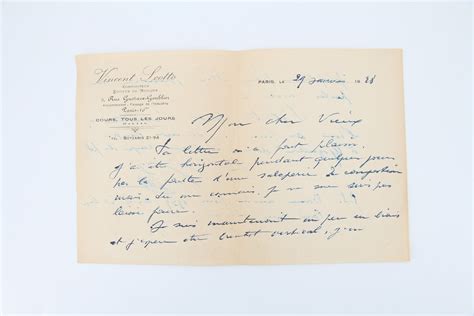 Vincent Scotto
Compositeur
Éditeur de Musique
2, Rue Gustave-Goublier
Paris-10e
COURS, TOUS LES JOURS
PARIS, LE 29 janvier 19
Mon cher Vieux
Ta lettre m'a fait plaisir
J'ai été horizontal pendant quelques jours
par la faute d'une saloperie de congestion
mais tu me connais, je ne me suis pas
laissé faire.
Je suis maintenant un peu en biais
et j'espère être bientôt vertical, j'en